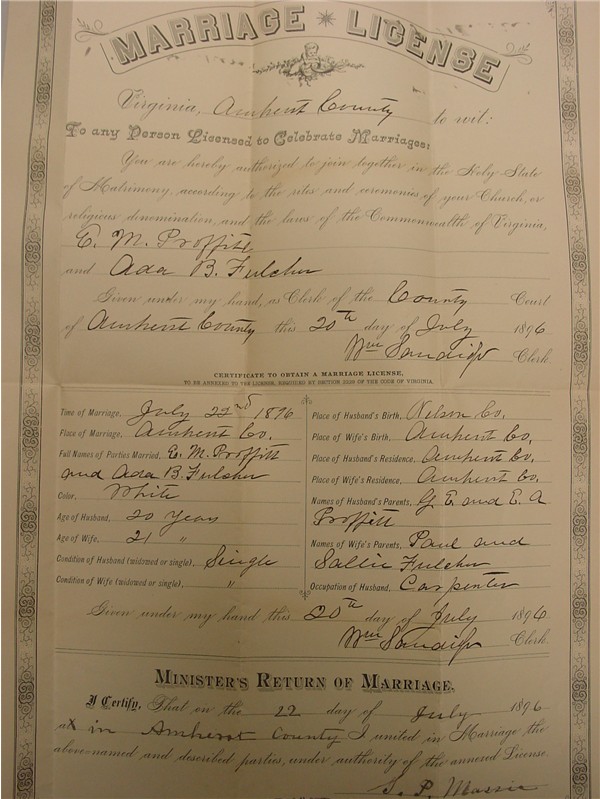 MARRIAGE LICENSE
Virginia, Amherst County to wit:
To any Person Licensed to Celebrate Marriages:
You are hereby authorized to join together in the Holy State
of Matrimony, according to the rites and ceremonies of your Church, or
religious denomination, and the laws of the Commonwealth of Virginia,
E. M. Proffitt
and Ada B. Fulcher
Given under my hand, as Clerk of the County Court
of Amherst County this 20th day of July 1896
Wm Sandidge Clerk
CERTIFICATE TO OBTAIN A MARRIAGE LICENSE,
TO BE ANNEXED TO THE LICENSE, REQUIRED BY SECTION 2229 OF THE CODE OF VIRGINIA.
Time of Marriage, July 22nd 1896
Place of Marriage, Amherst Co.
Full Names of Parties Married, E. M. Proffitt
and Ada B. Fulcher
Color, White
Age of Husband, 20 Years
Age of Wife, 21 "
Condition of Husband (widowed or single), Single
Condition of Wife (widowed or single), "
Place of Husband's Birth, Nelson Co.
Place of Wife's Birth, Amherst Co.
Place of Husband's Residence, Amherst Co.
Place of Wife's Residence, Amherst Co.
Names of Husband's Parents, E and E. A
Proffitt
Names of Wife's Parents, Paul and
Sallie Fulcher
Occupation of Husband, Carpenter
Given under my hand this 20th day of July 1896
Wm Sandidge Clerk
MINISTER'S RETURN OF MARRIAGE.
I Certify, That on the 22 day of July 1896
at in Amherst County I united in Marriage the
above-named and described parties, under authority of the annexed License.
S. P. Massie